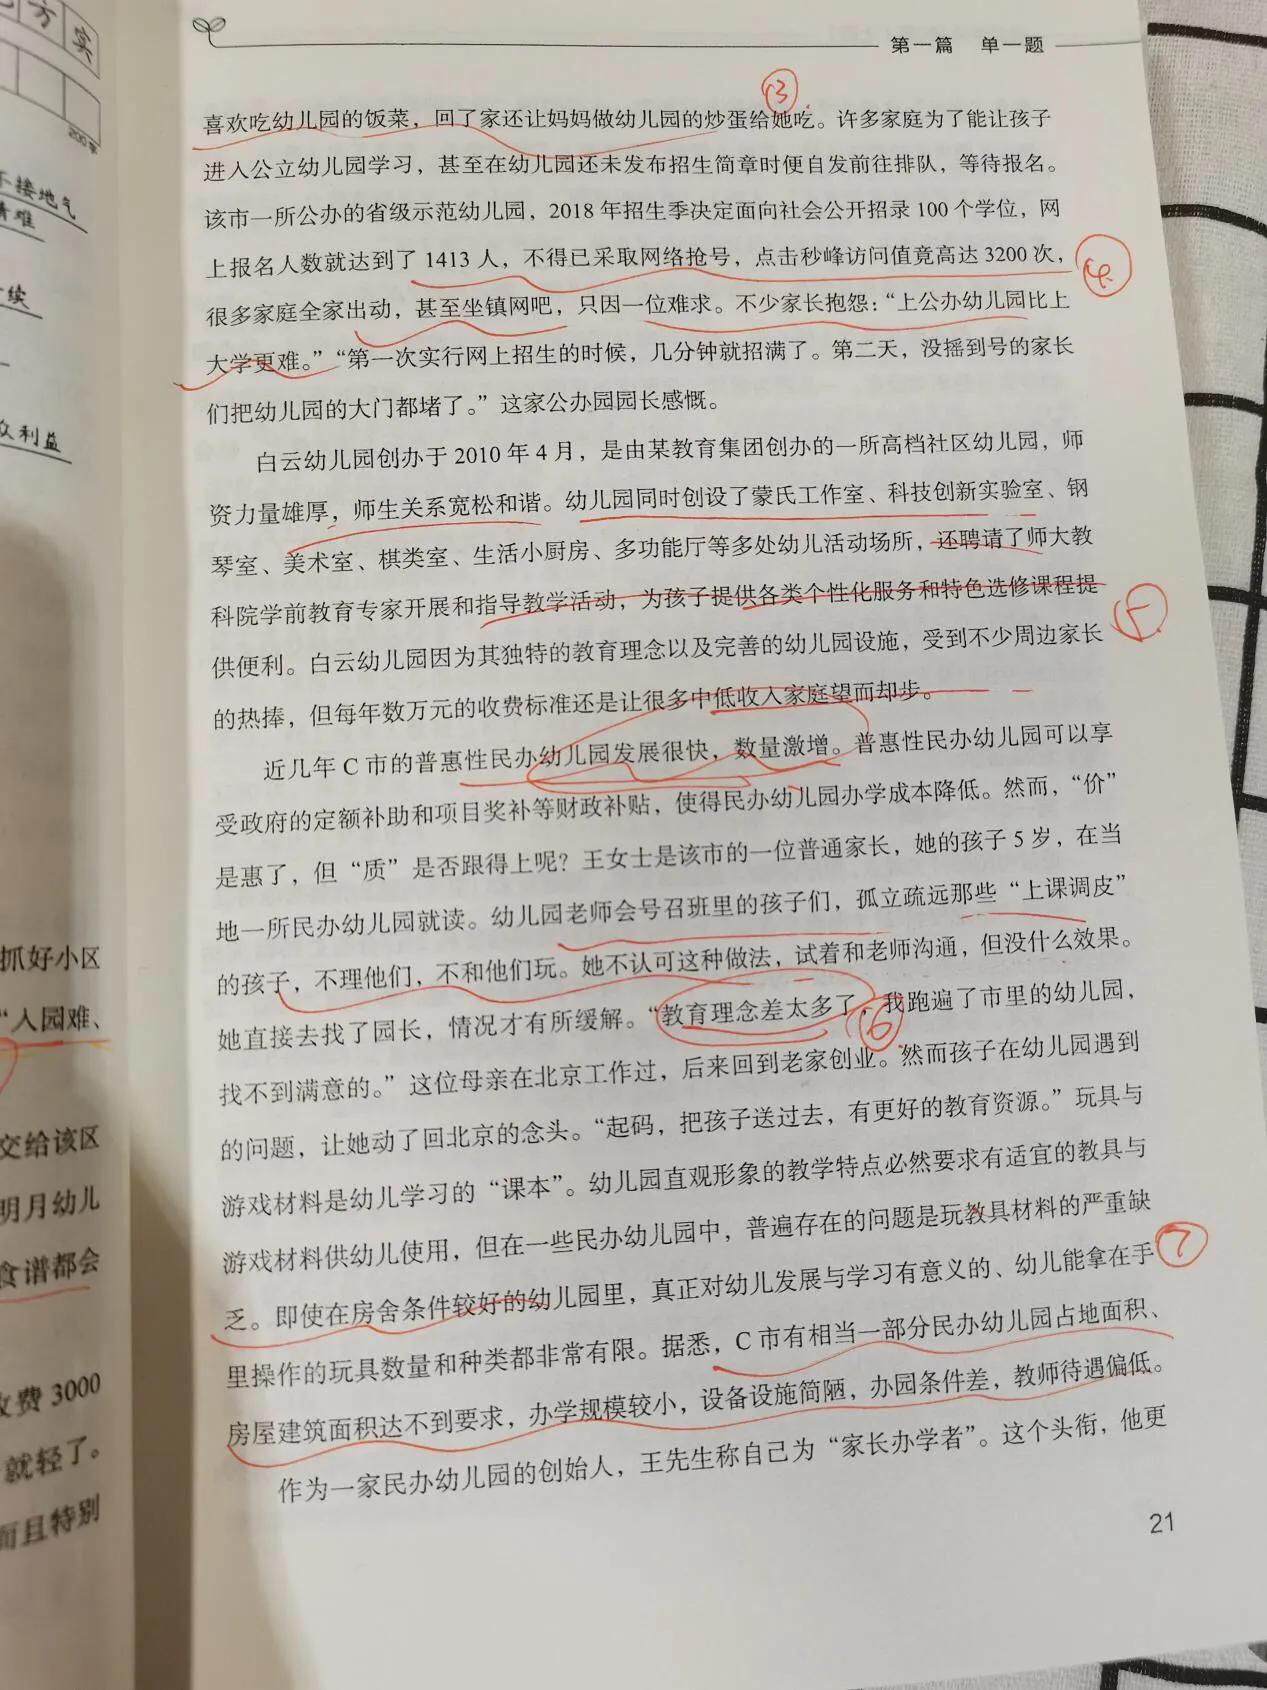 方实
200字
不接地气
续
众利益
抓好小区
“入园难、
交给该区
明月幼儿
食谱都会
收费 3000
就轻了。
而且特别
第一篇 单一题
③
喜欢吃幼儿园的饭菜，回了家还让妈妈做幼儿园的炒蛋给她吃。许多家庭为了能让孩子
进入公立幼儿园学习，甚至在幼儿园还未发布招生简章时便自发前往排队，等待报名。
该市一所公办的省级示范幼儿园，2018 年招生季决定面向社会公开招录 100 个学位，网
上报名人数就达到了 1413 人，不得已采取网络抢号，点击秒峰访问值竟高达 3200 次，
④
很多家庭全家出动，甚至坐镇网吧，只因一位难求。不少家长抱怨：“上公办幼儿园比上
大学更难。”“第一次实行网上招生的时候，几分钟就招满了。第二天，没摇到号的家长
们把幼儿园的大门都堵了。”这家公办园园长感慨。
白云幼儿园创办于 2010 年 4 月，是由某教育集团创办的一所高档社区幼儿园，师
资力量雄厚，师生关系宽松和谐。幼儿园同时创设了蒙氏工作室、科技创新实验室、钢
琴室、美术室、棋类室、生活小厨房、多功能厅等多处幼儿活动场所，还聘请了师大教
科院学前教育专家开展和指导教学活动，为孩子提供各类个性化服务和特色选修课程提
⑤
供便利。白云幼儿园因为其独特的教育理念以及完善的幼儿园设施，受到不少周边家长
的热捧，但每年数万元的收费标准还是让很多中低收入家庭望而却步。
近几年 C 市的普惠性民办幼儿园发展很快，数量激增。普惠性民办幼儿园可以享
受政府的定额补助和项目奖补等财政补贴，使得民办幼儿园办学成本降低。然而，“价”
是惠了，但“质”是否跟得上呢？王女士是该市的一位普通家长，她的孩子 5 岁，在当
地一所民办幼儿园就读。幼儿园老师会号召班里的孩子们，孤立疏远那些“上课调皮”
的孩子，不理他们，不和他们玩。她不认可这种做法，试着和老师沟通，但没什么效果。
她直接去找了园长，情况才有所缓解。“教育理念差太多了，我跑遍了市里的幼儿园，
⑥
找不到满意的。”这位母亲在北京工作过，后来回到老家创业。然而孩子在幼儿园遇到
的问题，让她动了回北京的念头。“起码，把孩子送过去，有更好的教育资源。”玩具与
游戏材料是幼儿学习的“课本”。幼儿园直观形象的教学特点必然要求有适宜的教具与
游戏材料供幼儿使用，但在一些民办幼儿园中，普遍存在的问题是玩教具材料的严重缺
⑦
乏。即使在房舍条件较好的幼儿园里，真正对幼儿发展与学习有意义的、幼儿能拿在手
里操作的玩具数量和种类都非常有限。据悉，C 市有相当一部分民办幼儿园占地面积、
房屋建筑面积达不到要求，办学规模较小，设备设施简陋，办园条件差，教师待遇偏低。
作为一家民办幼儿园的创始人，王先生称自己为“家长办学者”。这个头衔，他更
21